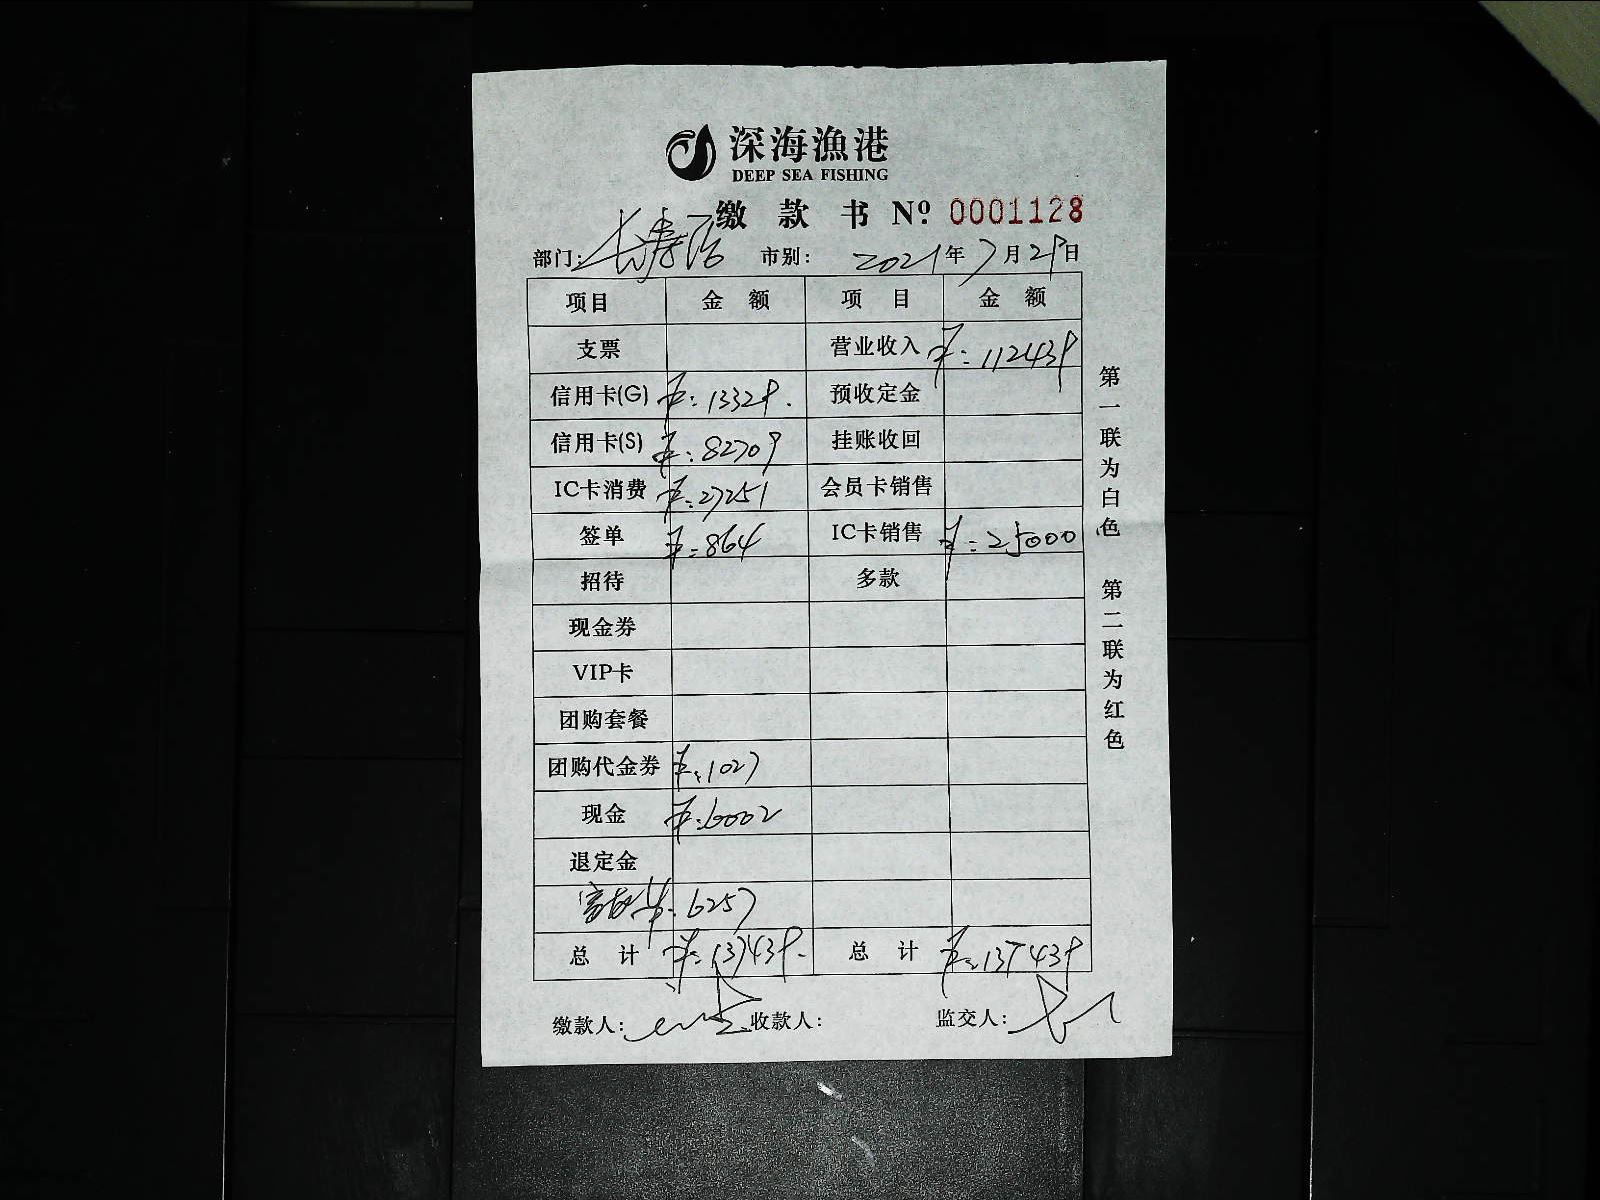 深海漁港
DEEP SEA FISHING
缴款书 Nº 0001128
部门: 长寿店 市别: 2021年7月29日
项目 金额 项目 金额
支票 营业收入 ¥:112439
信用卡(G) ¥:13329. 预收定金
信用卡(S) ¥:82709 挂账收回
IC卡消费 ¥:27251 会员卡销售
签单 ¥:864 IC卡销售 ¥:25000
招待 多款
现金券
VIP卡
团购套餐
团购代金券 ¥:1027
现金 ¥:6002
退定金
富友 ¥:6257
总计 ¥:137439. 总计 ¥:137439
缴款人: 收款人: 监交人:
第一联为白色 第二联为红色